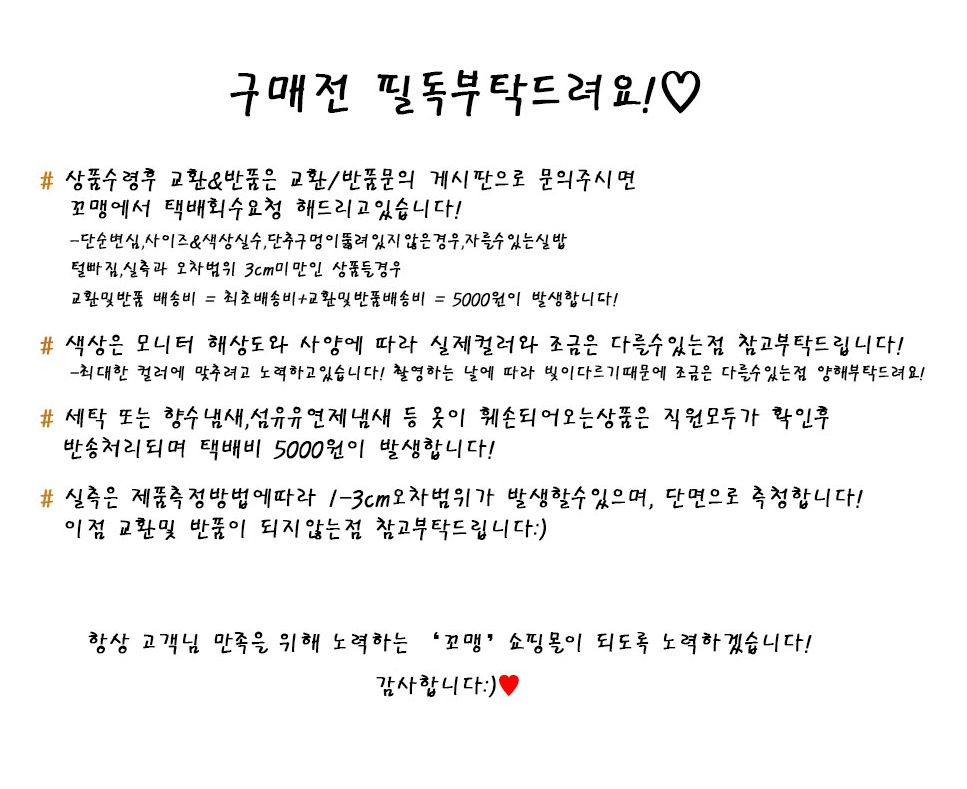 구매전 필독부탁드려요!♡
# 상품수령후 교환&반품은 교환/반품문의 게시판으로 문의주시면
꼬맹에서 택배회수요청 해드리고있습니다!
-단순변심,사이즈&색상실수,단추구멍이뚫려있지않은경우,자를수있는실밥
털빠짐,실측과 오차범위 3cm미만인 상품들경우
교환및반품 배송비 = 최초배송비+교환및반품배송비 = 5000원이 발생합니다!
# 색상은 모니터 해상도와 사양에 따라 실제컬러와 조금은 다를수있는점 참고부탁드립니다!
-최대한 컬러에 맞추려고 노력하고있습니다! 촬영하는 날에 따라 빛이다르기때문에 조금은 다를수있는점 양해부탁드려요!
# 세탁 또는 향수냄새,섬유유연제냄새 등 옷이 훼손되어오는상품은 직원모두가 확인후
반송처리되며 택배비 5000원이 발생합니다!
# 실측은 제품측정방법에따라 1-3cm오차범위가 발생할수있으며, 단면으로 측청합니다!
이점 교환및 반품이 되지않는점 참고부탁드립니다:)
항상 고객님 만족을 위해 노력하는 '꼬맹' 쇼핑몰이 되도록 노력하겠습니다!
감사합니다:)♥